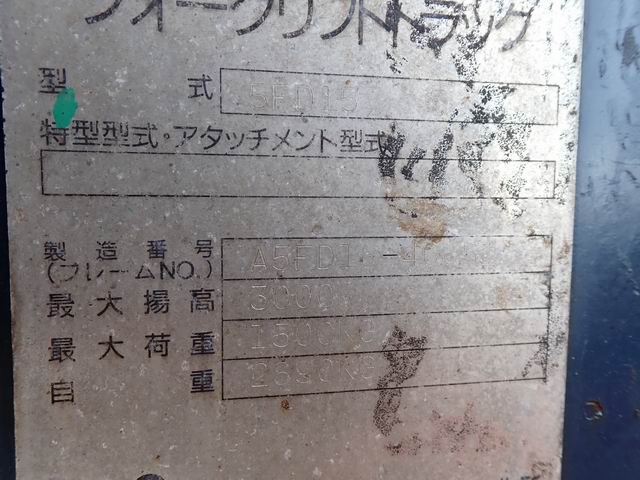 フォークリフトトラック
型 式 5FD15
特型型式・アタッチメント型式
製造番号
(フレームNO.) A5FD1
最大揚高 3000
最大荷重 1500KG
自 重